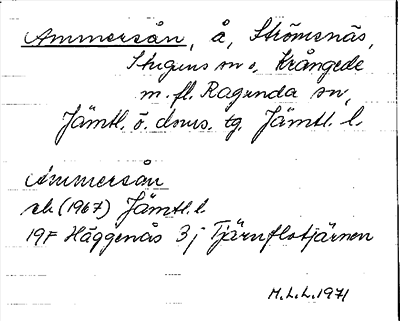 Ammersån, å, Strömsnäs,
Stuguns sn o. Krångede
m. fl. Ragunda sn,
Jämtl. ö. doms. tg. Jämtl. l.
Ammersån
ek (1967) Jämtl. l.
19F Häggenås 3j Tjärnflotjärnen
M.L.L. 1971